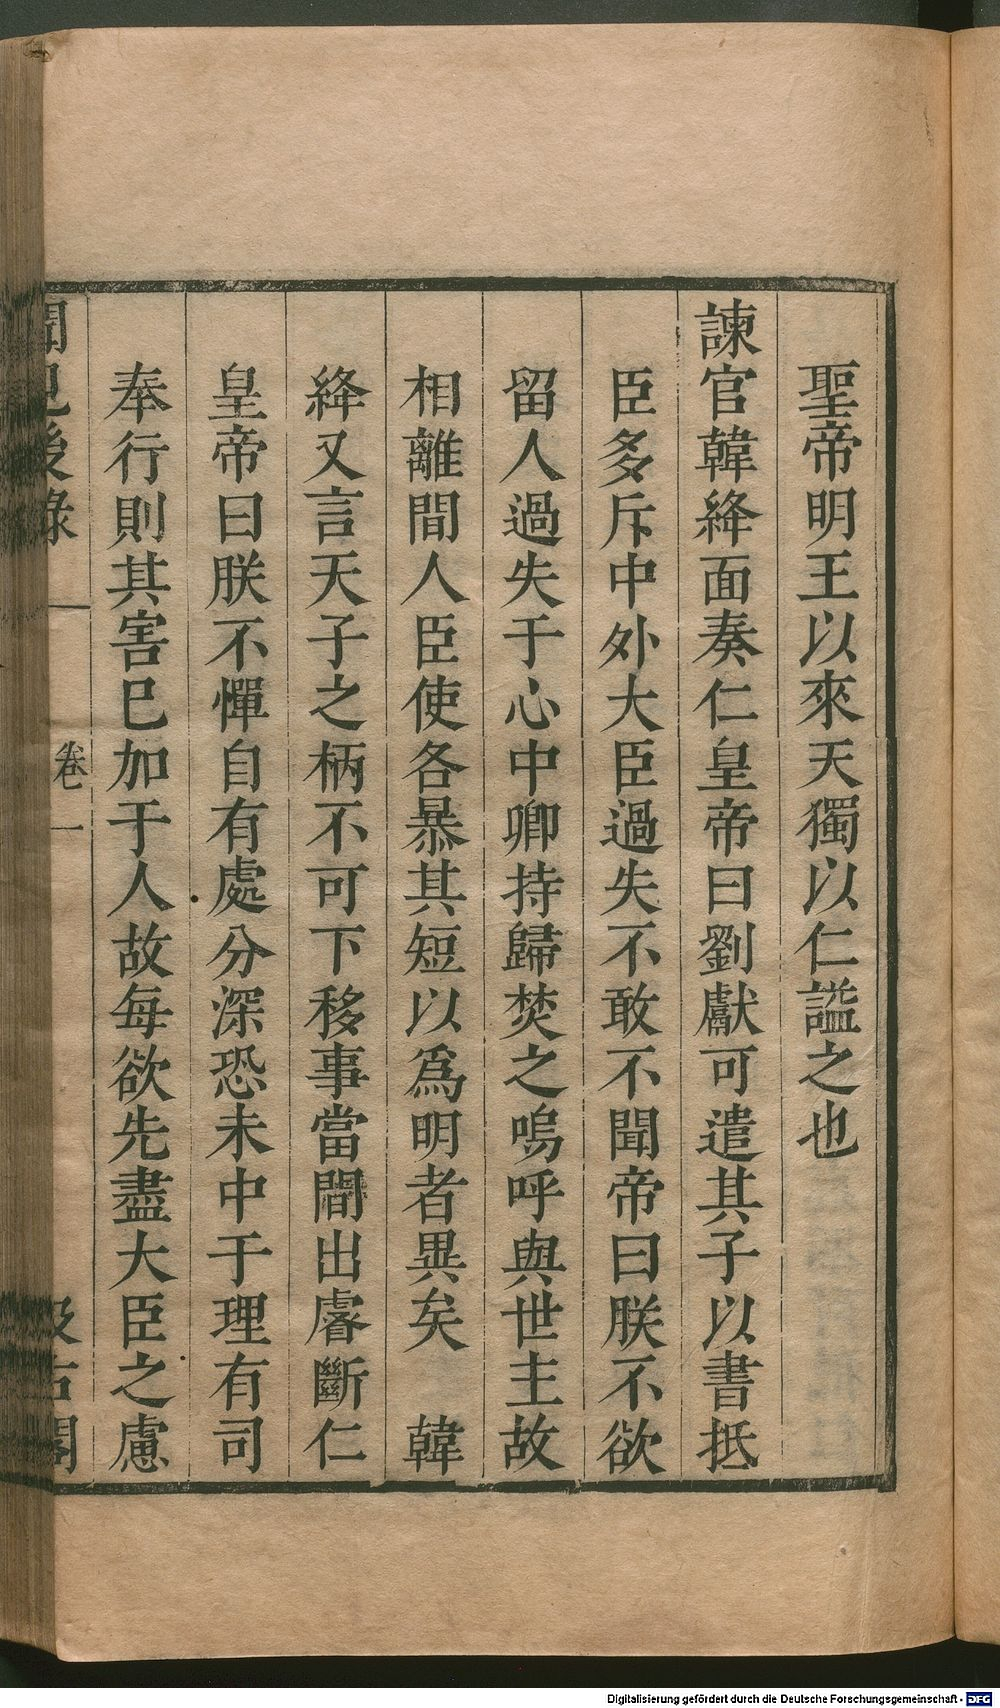 聖帝明王以來天獨以仁謚之也
諫官韓絳面奏仁皇帝曰劉獻可遣其子以書抵
臣多斥中外大臣過失不敢不聞帝曰朕不欲
留人過失于心中卿持歸焚之嗚呼與世主故
相離間人臣使各暴其短以爲明者異矣　韓
絳又言天子之柄不可下移事當間出睿斷仁
皇帝曰朕不憚自有處分深恐未中于理有司
奉行則其害巳加于人故每欲先盡大臣之慮
聞見後錄　卷一　汲古閣
Digitalisierung gefördert durch die Deutsche Forschungsgemeinschaft - DFG